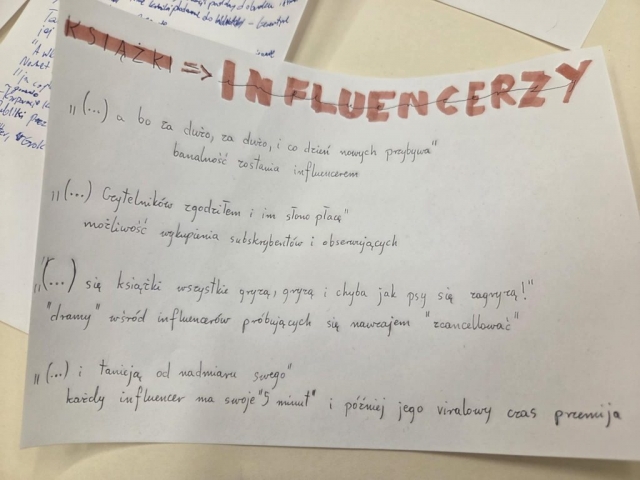 KSIĄŻKI => INFLUENCERZY
„(...) a bo za dużo, za dużo, i co dzień nowych przybywa"
banalność zostania influencerem
„(...) Czytelników zgodziłem i im słono płacę"
możliwość wykupienia subskrybentów i obserwujących
„(...) się książki wszystkie gryzą, gryzą i chyba jak psy się zagryzą!"
"dramy" wśród influencerów próbujących się nawzajem "zcancellować"
„(...) i tanieją od nadmiaru swego"
każdy influencer ma swoje "5 minut" i później jego viralowy czas przemija